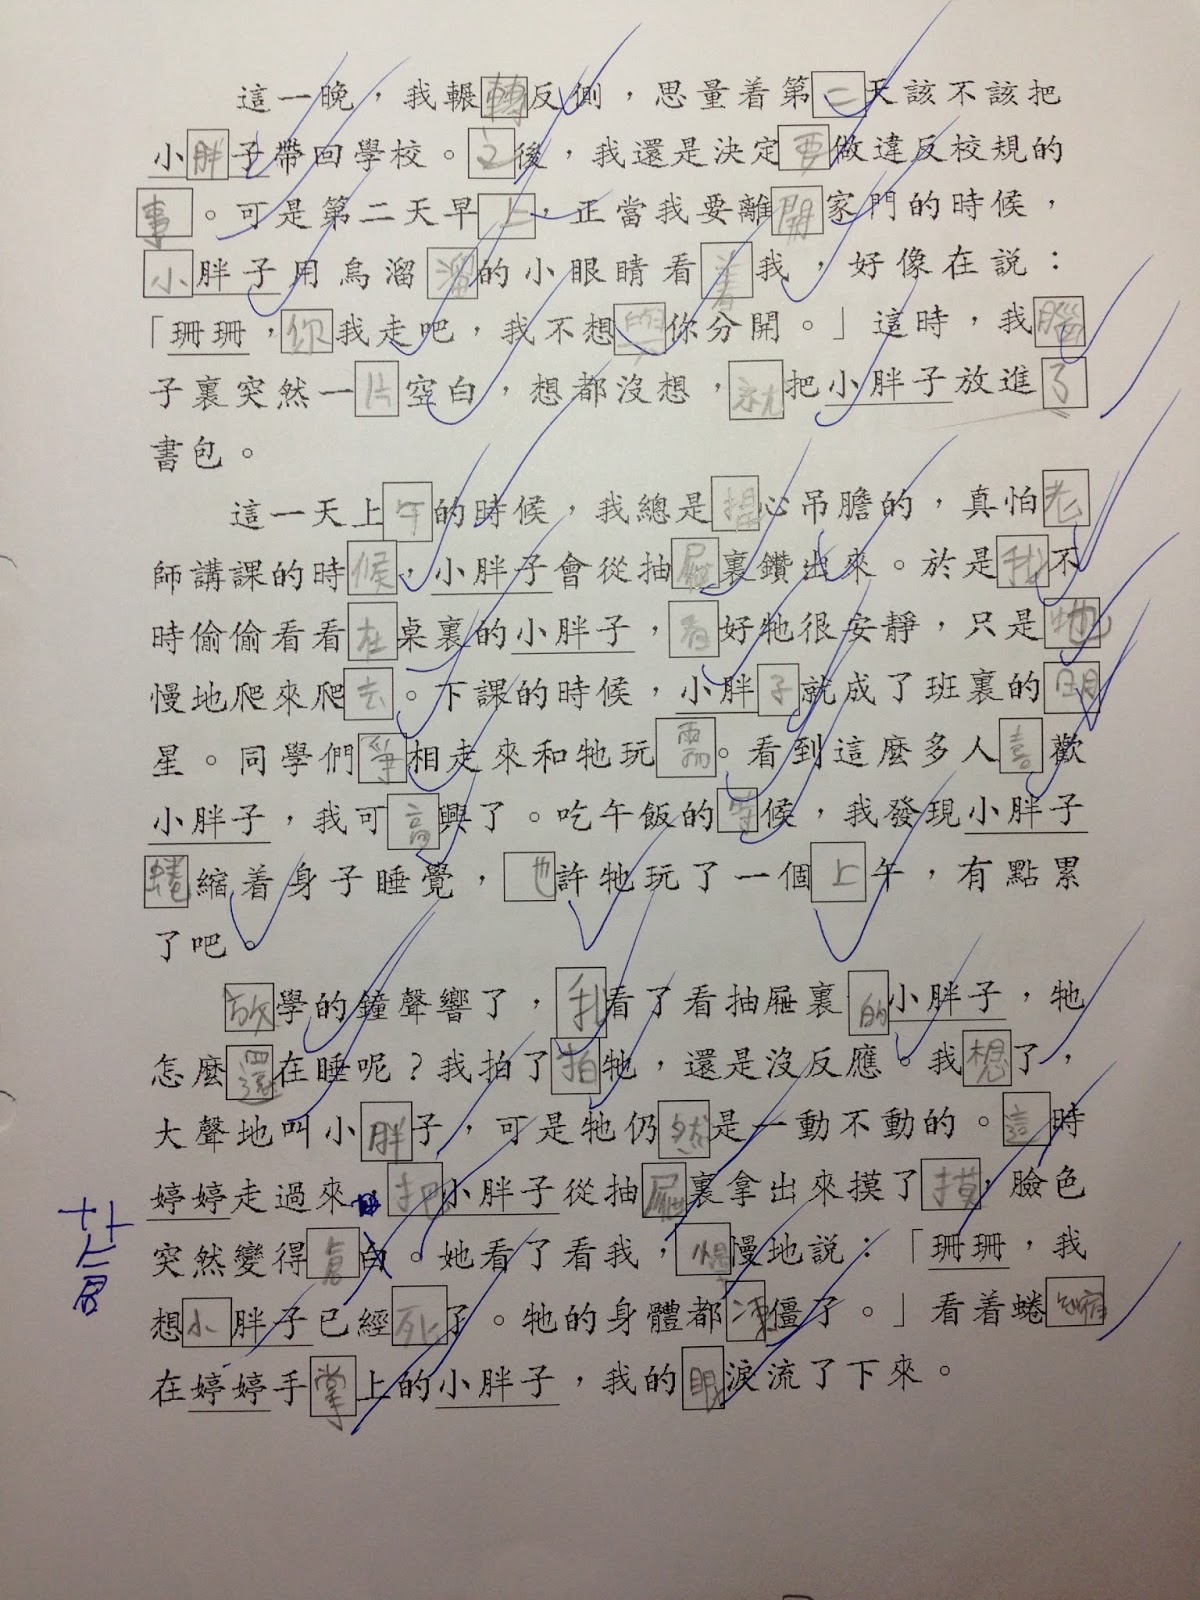 這一晚，我輾轉反側，思量着第二天該不該把
小胖子帶回學校。之後，我還是決定要做違反校規的
事。可是第二天早上，正當我要離開家門的時候，
小胖子用烏溜溜的小眼睛看着我，好像在説：
「珊珊，你我走吧，我不想與你分開。」這時，我腦
子裏突然一片空白，想都沒想，就把小胖子放進了
書包。
這一天上午的時候，我總是提心吊膽的，真怕老
師講課的時候，小胖子會從抽屜裏鑽出來。於是我不
時偷偷看看在桌裏的小胖子，看好牠很安靜，只是牠
慢地爬來爬去。下課的時候，小胖子就成了班裏的明
星。同學們爭相走來和牠玩。看到這麼多人喜歡
小胖子，我可高興了。吃午飯的時候，我發現小胖子
蜷縮着身子睡覺，也許牠玩了一個上午，有點累
了吧。
放學的鐘聲響了，我看了看抽屜裏的小胖子，牠
怎麼還在睡呢？我拍了拍牠，還是沒反應。我想了，
大聲地叫小胖子，可是牠仍然是一動不動的。這時
婷婷走過來，把小胖子從抽屜裏拿出來摸了摸，臉色
突然變得蒼白。她看了看我，慢慢地説：「珊珊，我
想小胖子已經死了。牠的身體都凍僵了。」看着蜷縮
在婷婷手掌上的小胖子，我的眼淚流了下來。